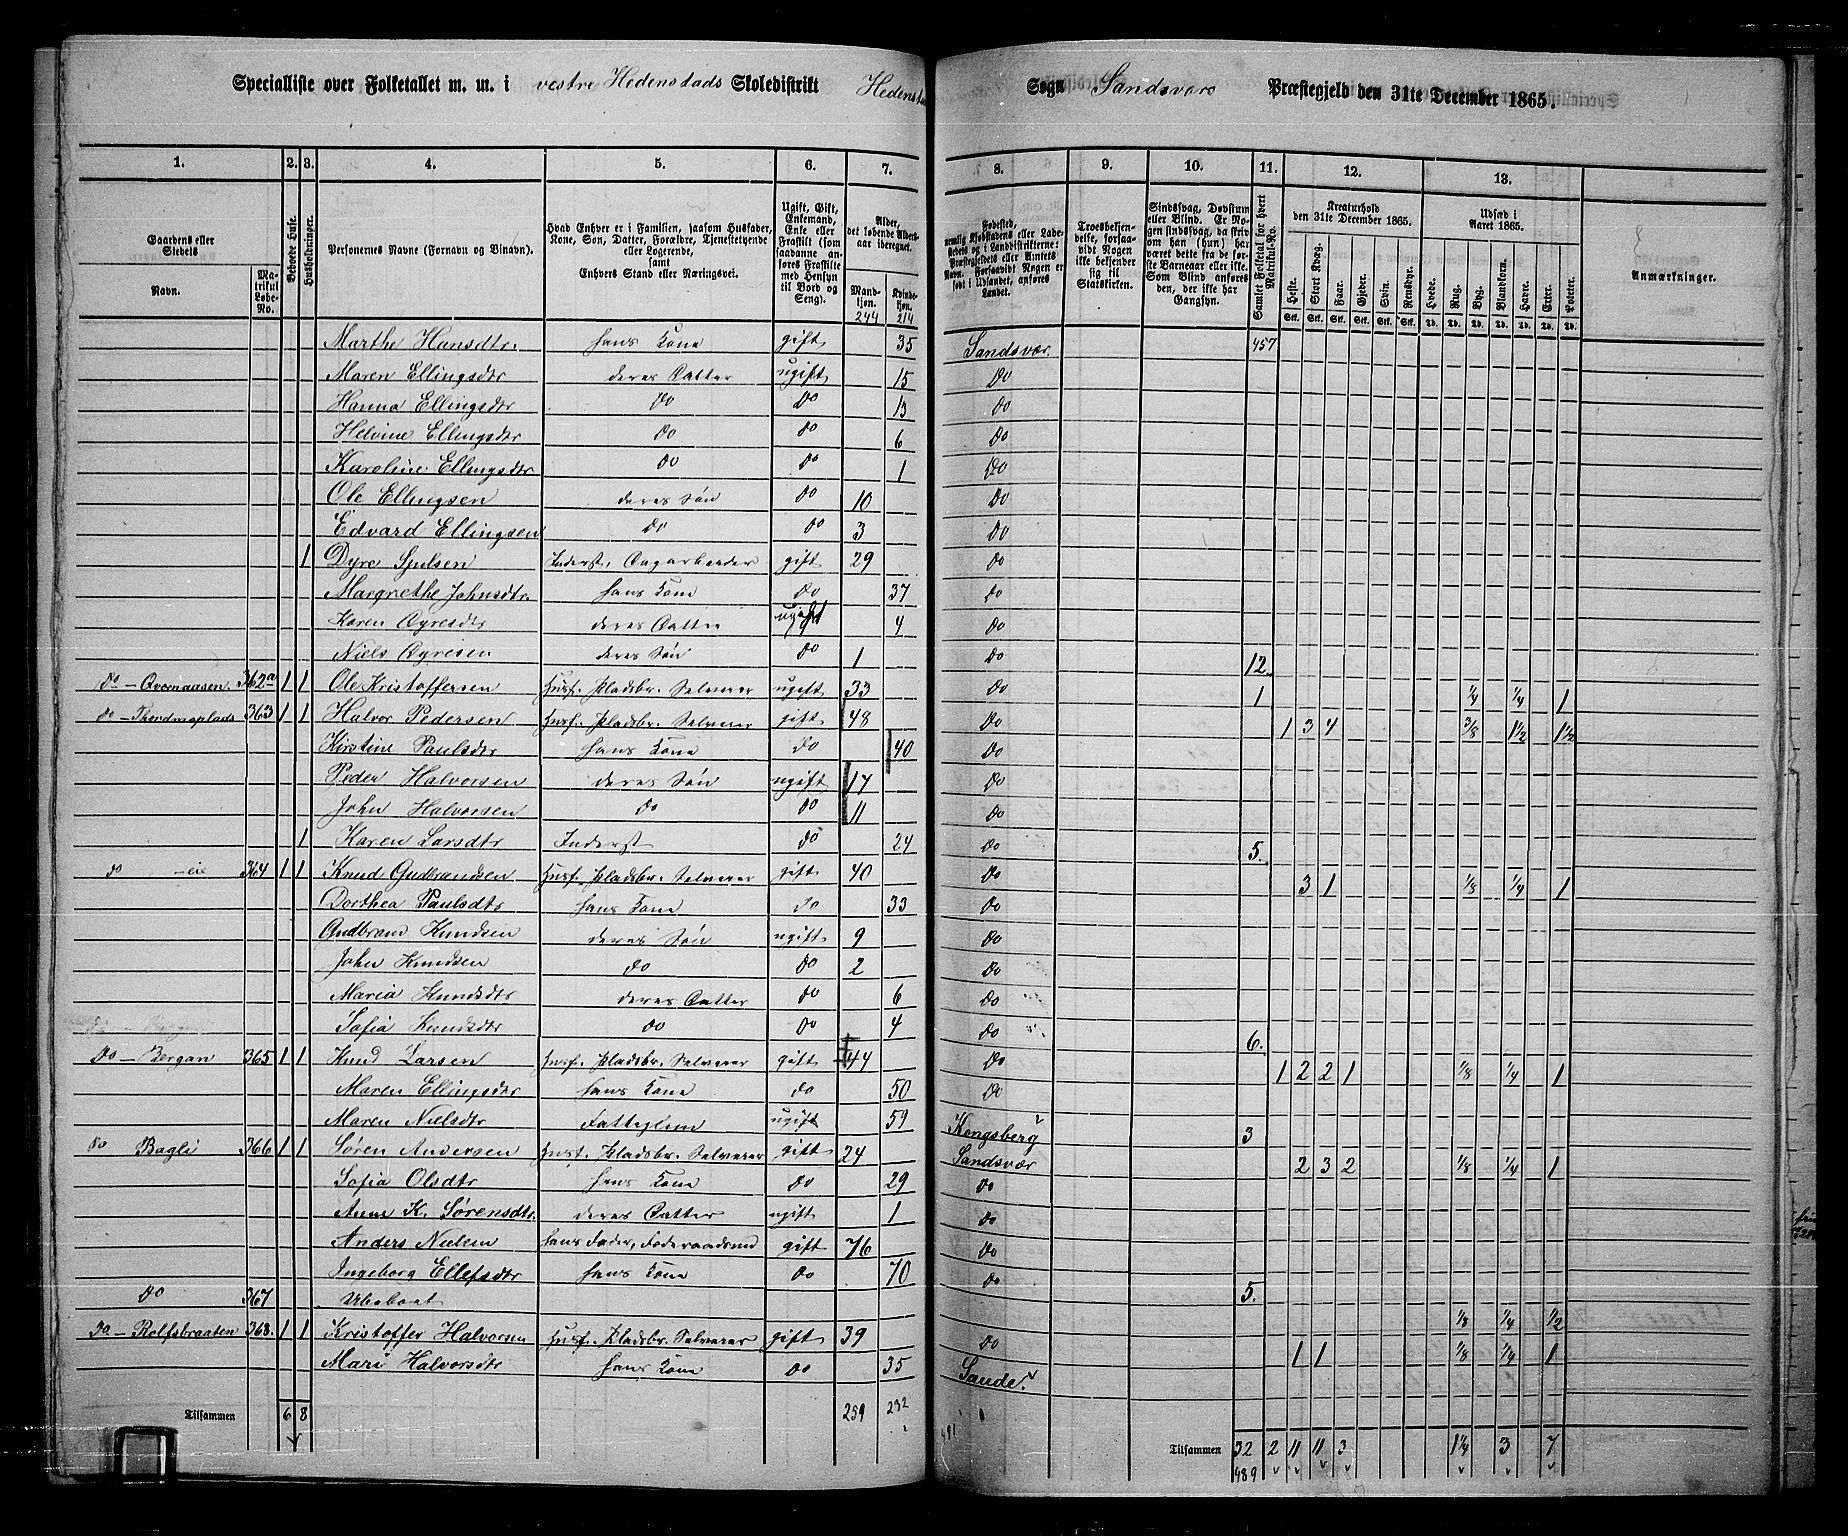 Specialliste over Folketallet m. m. i vestre Hedenstads Skoledistrikt Hedenst Sogn Sandsværs Præstegjeld den 31te December 1865.
1. 2. 3. 4. 5. 6. 7. 8. 9. 10. 11. 12. 13.
Gaardens eller Stedets Navn. Matrikul Løbe-No.
Beboede Huse.
Husholdninger.
Personernes Navne (Fornavn og Binavn).
Hvad Enhver er i Familien, saasom Husfader, Kone, Søn, Datter, Forældre, Tjenestetyende eller Logerende, samt Enhvers Stand eller Næringsvei.
Ugift, Gift, Enkemand, Enke eller Fraskilt (som saadanne anføres Fraskilte med Hensyn til Bord og Seng).
Alder, det løbende Alders-aar iberegnet. Mandkjøn. 244 Kvindekjøn. 214
Fødested, nemlig Kjøbstadens eller Ladestedets og i Landdistrikterne: Præstegjeldets eller Amtets Navn. Forsaavidt Nogen er født i Udlandet, anføres Landet.
Troesbekjendelse, forsaavidt Nogen ikke bekjender sig til Statskirken.
Sindssvag, Døvstum eller Blind. Er Nogen sindssvag, da skriv om han (hun) har været dette fra de første Barneaar eller ikke. Som Blind anføres den, der ikke har Gangsyn.
Samlet Folketal for hvert Matrikul-No.
Kreaturhold den 31te December 1865. Heste. Stort Kvæg. Faar. Gjeder. Svin. Rensdyr.
Udsæd i Aaret 1865. Hvede. Rug. Byg. Blandkorn. Havre. Erter. Poteter.
Anmærkninger.
Marthe Hansdtr. hans Kone gift 35 Sandsvær. 457
Maren Ellingsdtr deres Datter ugift 15 Do
Hanna Ellingsdtr Do Do 13 Do
Helvine Ellingsdtr Do Do 6 Do
Karoline Ellingsdtr Do Do 1 Do
Ole Ellingsen deres Søn Do 10 Do
Edvard Ellingsen Do Do 3 Do
1 Dyre Sjulsen Inderst, Dagarbeider gift 29 Do
Margrethe Johnsdtr. hans Kone Do 37 Do
Karen Dyresdtr deres Datter ugift 4 Do
Niels Dyresen deres Søn Do 1 Do 12
Do - Overnaasen. 362a 1 1 Ole Kristoffersen Husf. Pladsbr. Selveier ugift 33 Do 1 1/4 1/4 1
Do - Thordmoplads 363 1 1 Halvor Pedersen Husf. Pladsbr. Selveier gift 48 Do 1 3 4 3/8 1 1/2 1 1/2
Kirstine Paulsdtr hans Kone Do 40 Do
Peder Halvorsen deres Søn ugift 17 Do
John Halvorsen Do Do 11 Do
1 Karen Larsdtr Inderst Do 24 Do 5.
Do - eie 364 1 1 Knud Gudbrandsen Husf. Pladsbr. Selveier gift 40 Do 3 1 1/8 1/4 1
Dorthea Paulsdtr hans Kone Do 33 Do
Gudbran Knudsen deres Søn ugift 9 Do
John Knudsen Do Do 2 Do
Maria Knudsdtr deres Datter Do 6 Do
Sofia Knudsdtr Do Do 4 Do 6.
Do - Bergan 365 1 1 Knud Larsen Husf. Pladsbr. Selveier gift 44 Do 1 2 2 1 1/8 1/4 1
Maren Ellingsdtr hans Kone Do 50 Do
Maren Nielsdtr Fattiglem ugift 59 Kongsberg 3
Do Bagli 366 1 1 Søren Andersen Husf. Pladsbr. Selveier gift 24 Sandsvær 2 3 2 1/8 1/4 1
Sofia Olsdtr hans Kone Do 29 Do
Anne K. Sørensdtr. deres Datter ugift 1 Do
Anders Nielsen hans Fader, Føderaadsmd gift 76 Do
Ingeborg Ellefsdtr hans Kone Do 70 Do 5.
Do 367 Ubeboet 1/8 1/4 1/2
Do - Rolfsbraaten 368. 1 1 Kristoffer Halvorsen Husf. Pladsbr. Selveier gift 39 Do 1 1 1/8 1/4 1
Mari Halvorsdtr hans Kone Do 35 Sande.
Tilsammen 6 8 259 232 491 Tilsammen 32 2 11 11 3 1 1/4 3 7
489